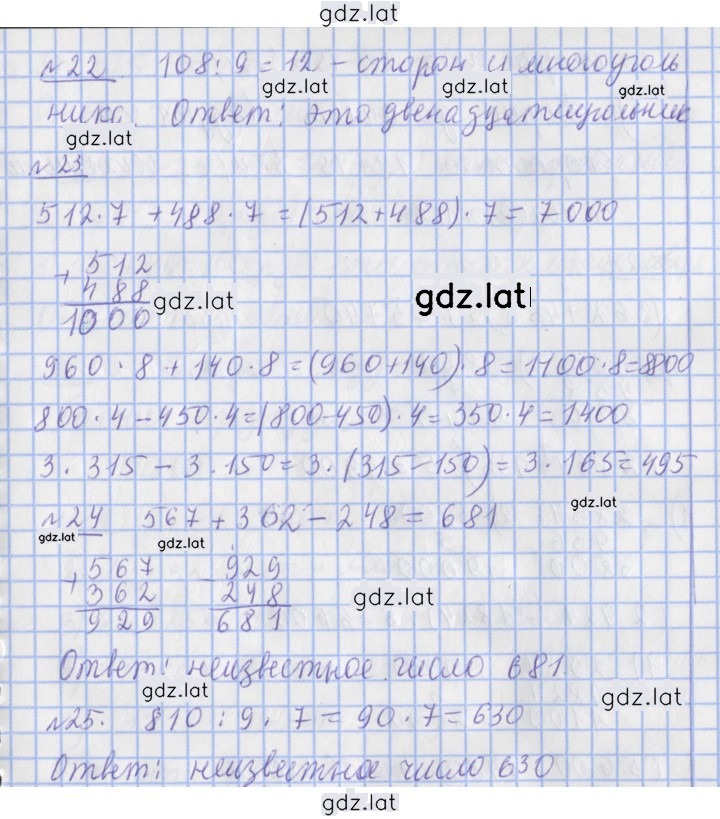 gdz.lat
№22 108 : 9 = 12 – сторон и многоуголь
gdz.lat gdz.lat gdz.lat
ника. Ответ: это двенадцатиугольник
gdz.lat
№23
512 · 7 + 488 · 7 = (512 + 488) · 7 = 7000
+ 512
488 gdz.lat gdz.lat
1000
960 · 8 + 140 · 8 = (960 + 140) · 8 = 1100 · 8 = 8800
800 · 4 – 450 · 4 = (800 – 450) · 4 = 350 · 4 = 1400
3 · 315 – 3 · 150 = 3 · (315 – 150) = 3 · 165 = 495
gdz.lat
№24 567 + 362 – 248 = 681
gdz.lat gdz.lat
+ 567 – 929
362 248 gdz.lat
929 681
Ответ: неизвестное число 681
gdz.lat gdz.lat
№25. 810 : 9 · 7 = 90 · 7 = 630
Ответ: неизвестное число 630
gdz.lat